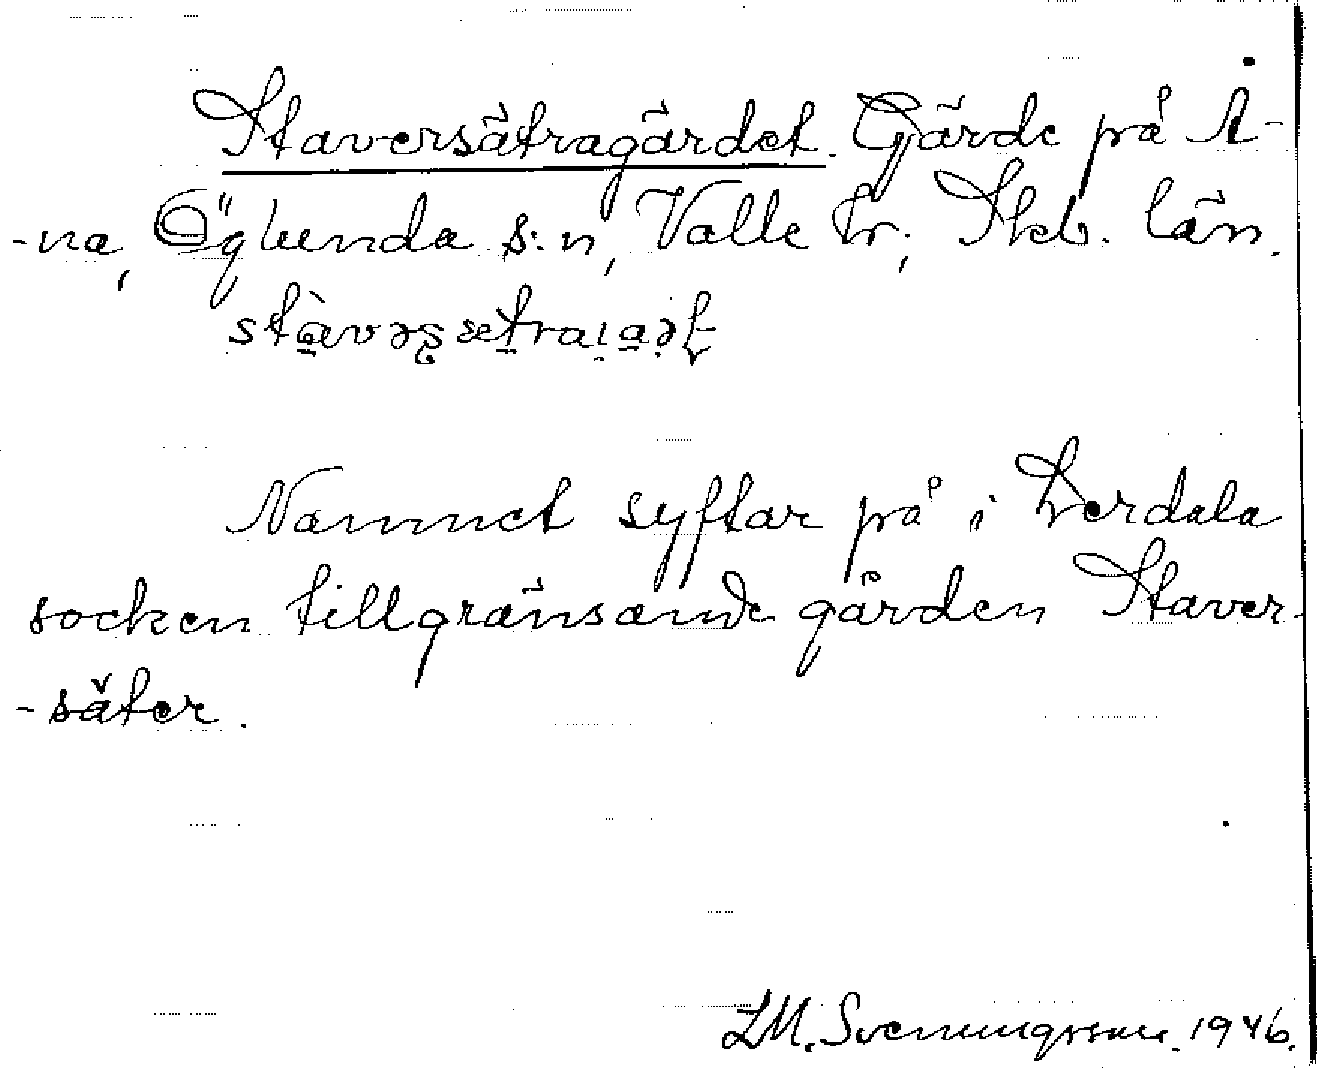 Staversätragärdet. Gärde på A-
-na, Öglunda s:n, Valle hr; Skb. län.
Namnet syftar på i Lerdala
socken tillgränsande gården Staver-
-säter.
L.M. Svenungsson. 1946.